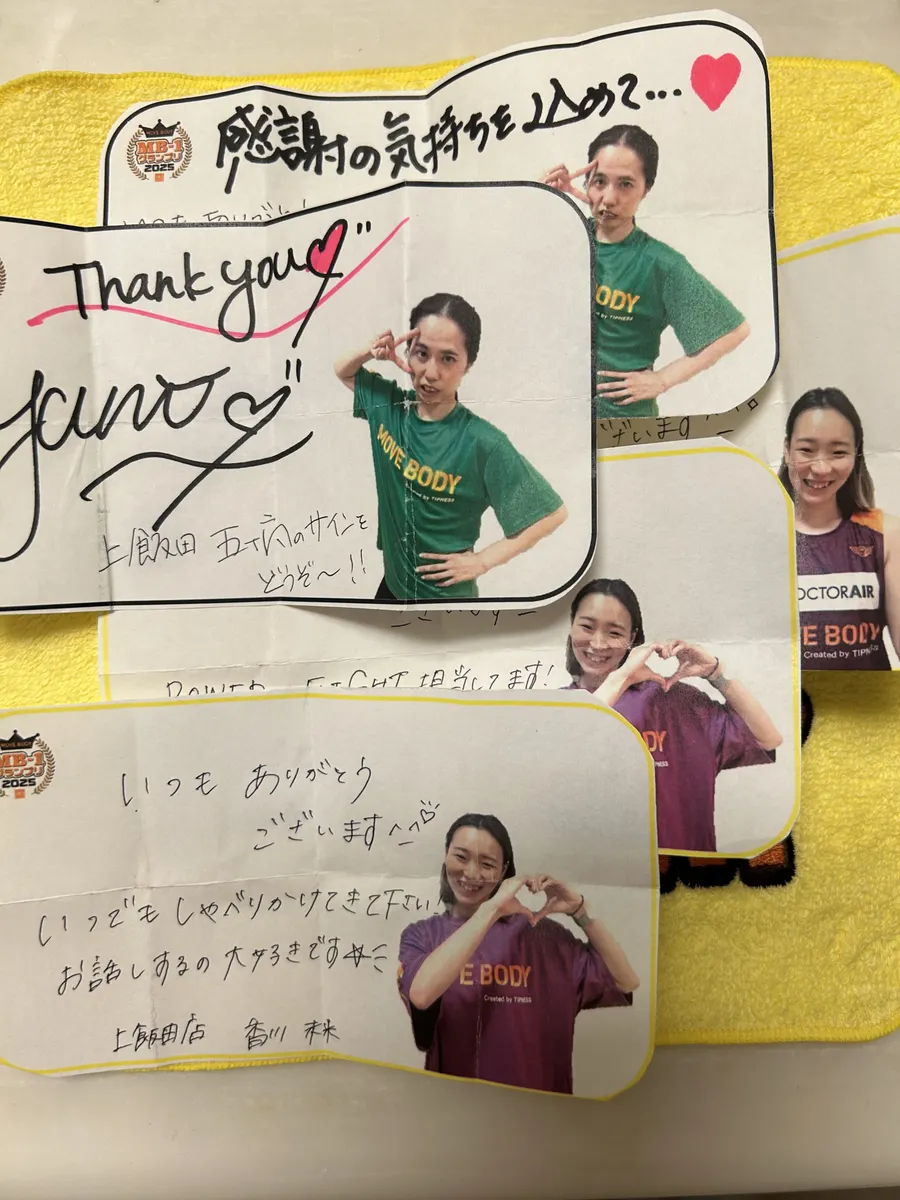 MOVE BODY
MB-1
グランプリ
2025
感謝の気持ちを込めて…
BODY
by TIPNESS
Thank you
yano
MOVE BODY
by TIPNESS
上飯田 五十六のサインを
どうぞ〜!!
ございます
DOCTORAIR
E BODY
Created by
POWER FIGHT 担当してます!
DY
MOVE BODY
MB-1
グランプリ
2025
いつも ありがとう
ございます^^
いつでもしゃべりかけてきて下さい!
お話しするの大好きです
E BODY
Created by TIPNESS
上飯田店 香川